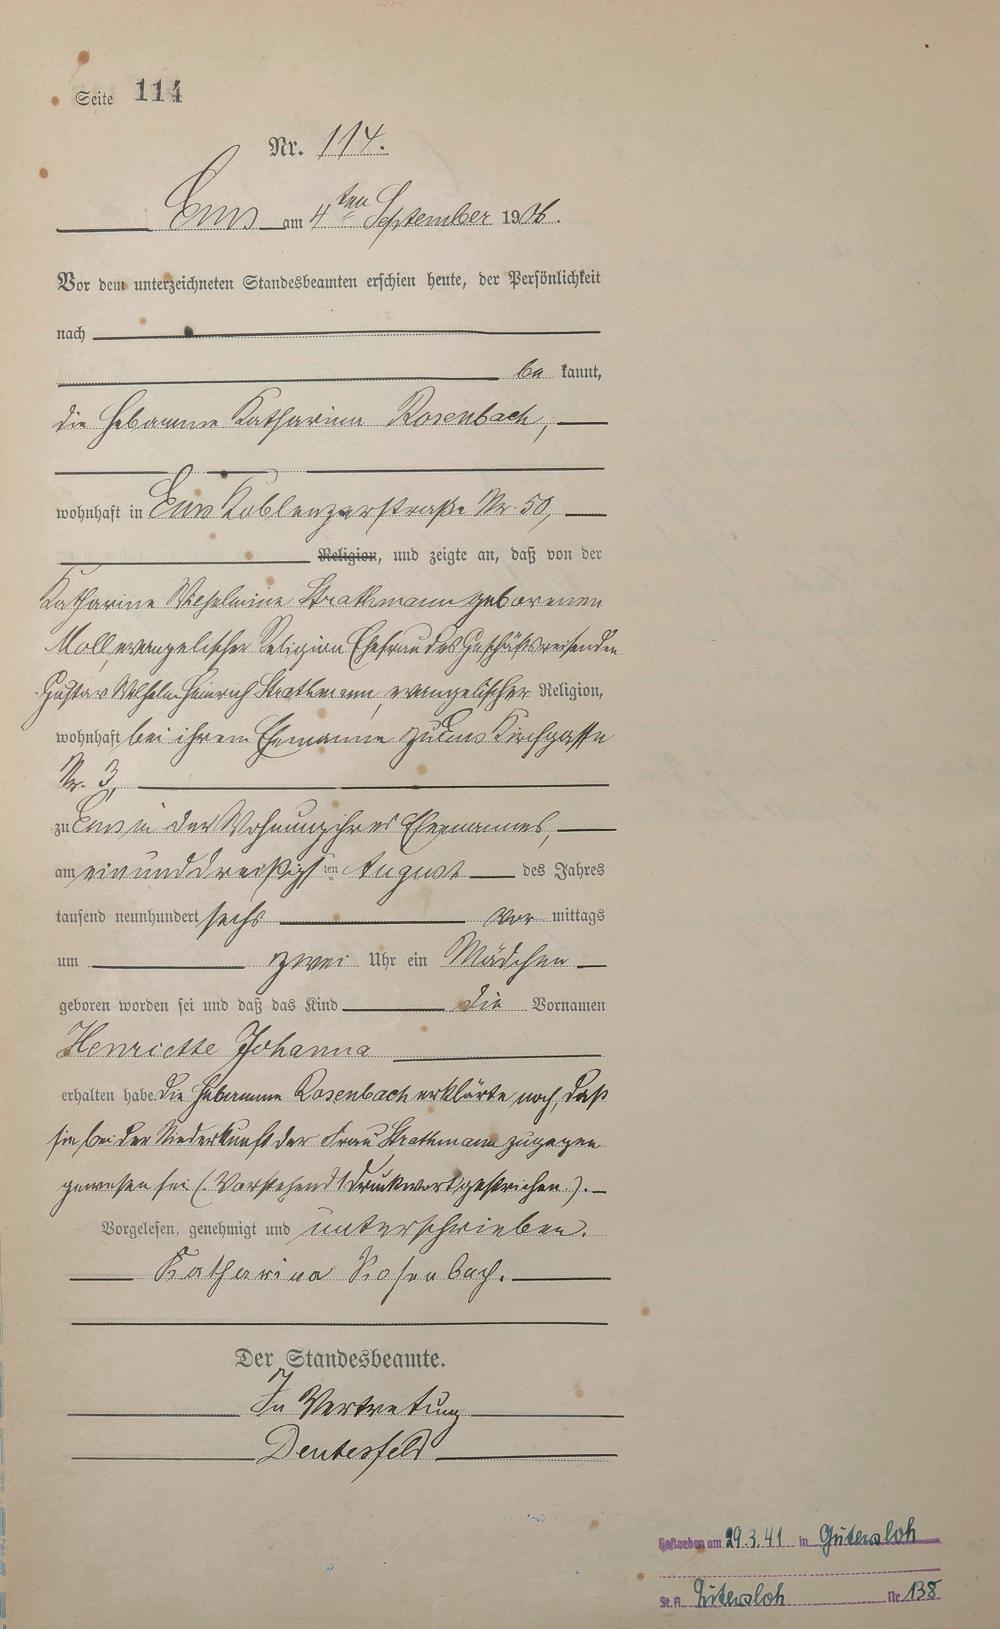 Seite 114
Nr. 114.
Ems am 4ten September 1906.
Vor dem unterzeichneten Standesbeamten erschien heute, der Persönlichkeit
nach
be kannt,
die Hebamme Katharina Rosenbach,
wohnhaft in Ems Koblenzerstraße Nr. 50,
Religion, und zeigte an, daß von der
Katharine Wilhelmine Strathmann geborenen
Moll, evangelischer Religion Ehefrau des Geschäftsreisenden
Gustav Wilhelm Heinrich Strathmann, evangelischer Religion,
wohnhaft bei ihrem Ehemanne zu Ems Kirchgasse
Nr. 3,
zu Ems in der Wohnung ihres Ehemannes,
am einunddreißigsten August des Jahres
tausend neunhundert sechs vor mittags
um zwei Uhr ein Mädchen
geboren worden sei und daß das Kind die Vornamen
Henriette Johanna
erhalten habe. Die Hebamme Rosenbach erklärte noch, daß
sie bei der Niederkunft der Frau Strathmann zugegen
gewesen sei (. Vorstehend 1 Druckwort gestrichen.).
Vorgelesen, genehmigt und unterschrieben.
Katharina Rosenbach.
Der Standesbeamte.
In Vertretung
Gestorben am 29.3.41 in Gütersloh
St. A. Gütersloh Nr. 138